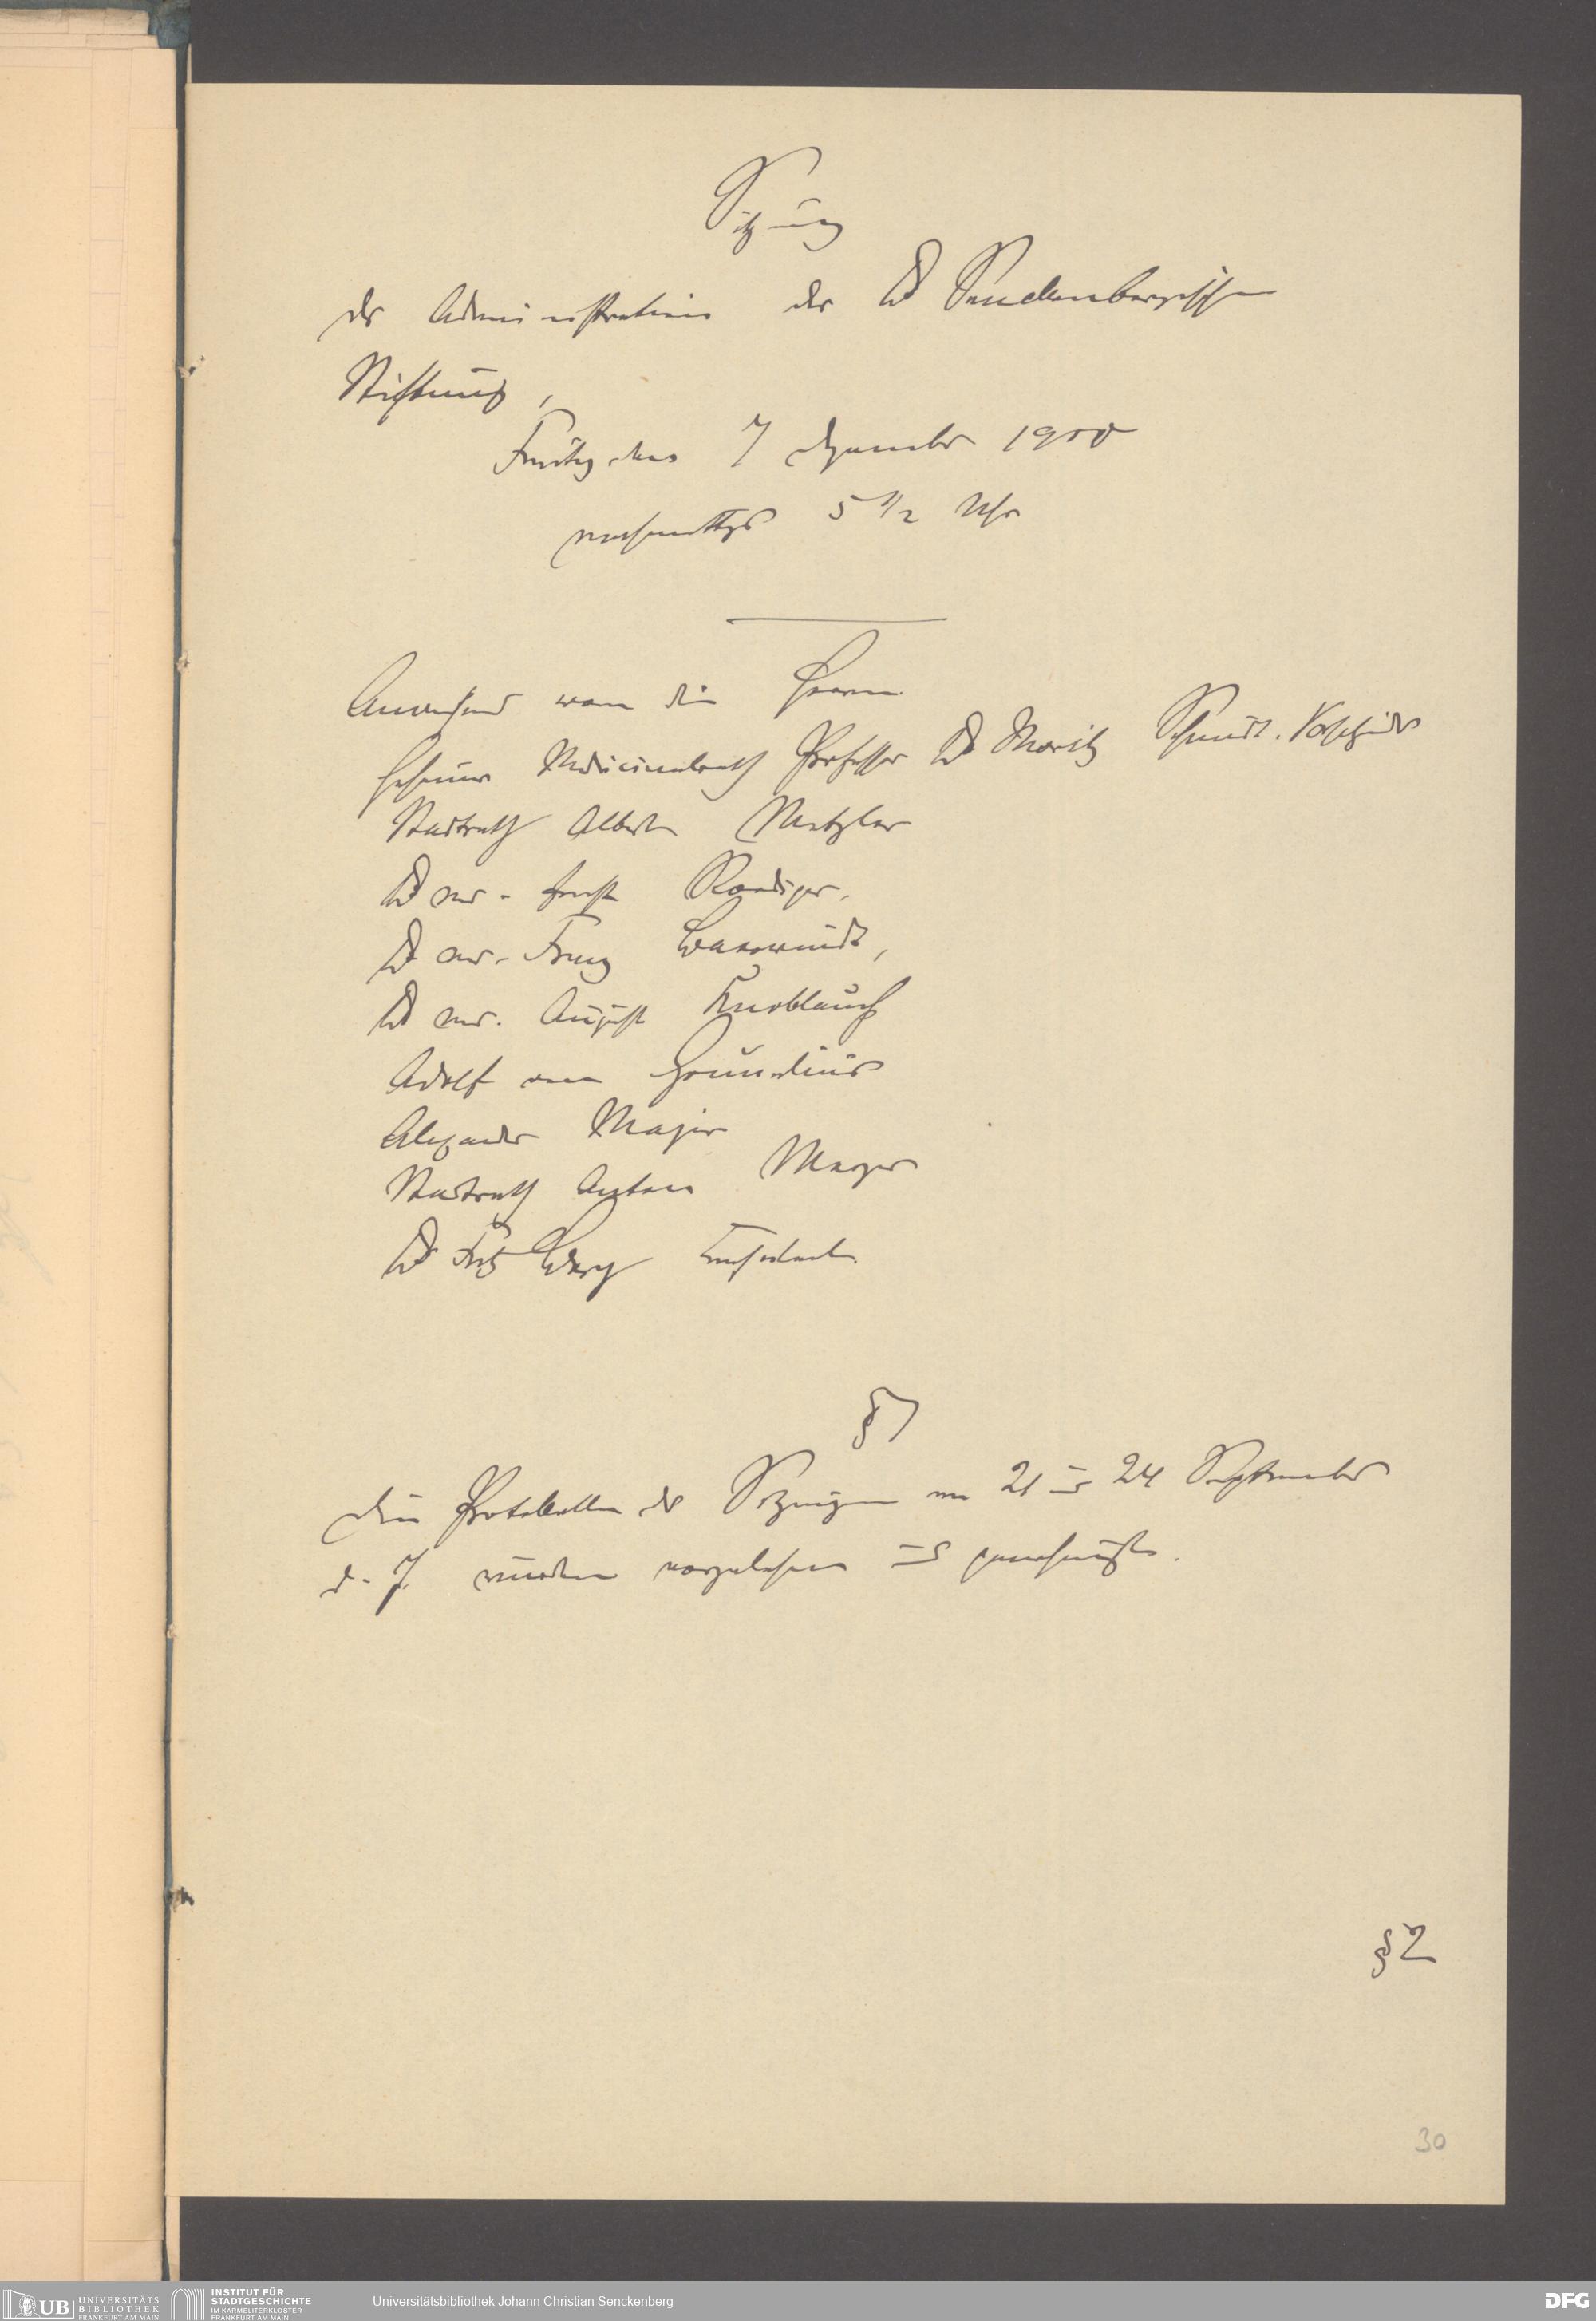 Sitzung
der Administration der Dr Senckenbergischen
Stiftung,
Freitag den 7 Dezember 1900
nachmittags 5 1/2 Uhr
Anwesend waren die Herren
Geheimer Medicinalrath Professor Dr Moritz Schmidt. Vorsitzender
Stadtrath Albert Metzler
Dr med. Ernst Roediger,
Dr med. Franz
Dr med. August Knoblauch
Adolf von Grunelius
Alexander Majer
Stadtrath Anton Meyer
Dr Fritz Berg Consulent.
§ 1
Die Protokolle der Sitzungen vom 21 und 24 September
d. J. wurden vorgelesen und genehmigt.
§ 2
30
UB UNIVERSITÄTS
BIBLIOTHEK
FRANKFURT AM MAIN
INSTITUT FÜR
STADTGESCHICHTE
IM KARMELITERKLOSTER
FRANKFURT AM MAIN
Universitätsbibliothek Johann Christian Senckenberg
DFG